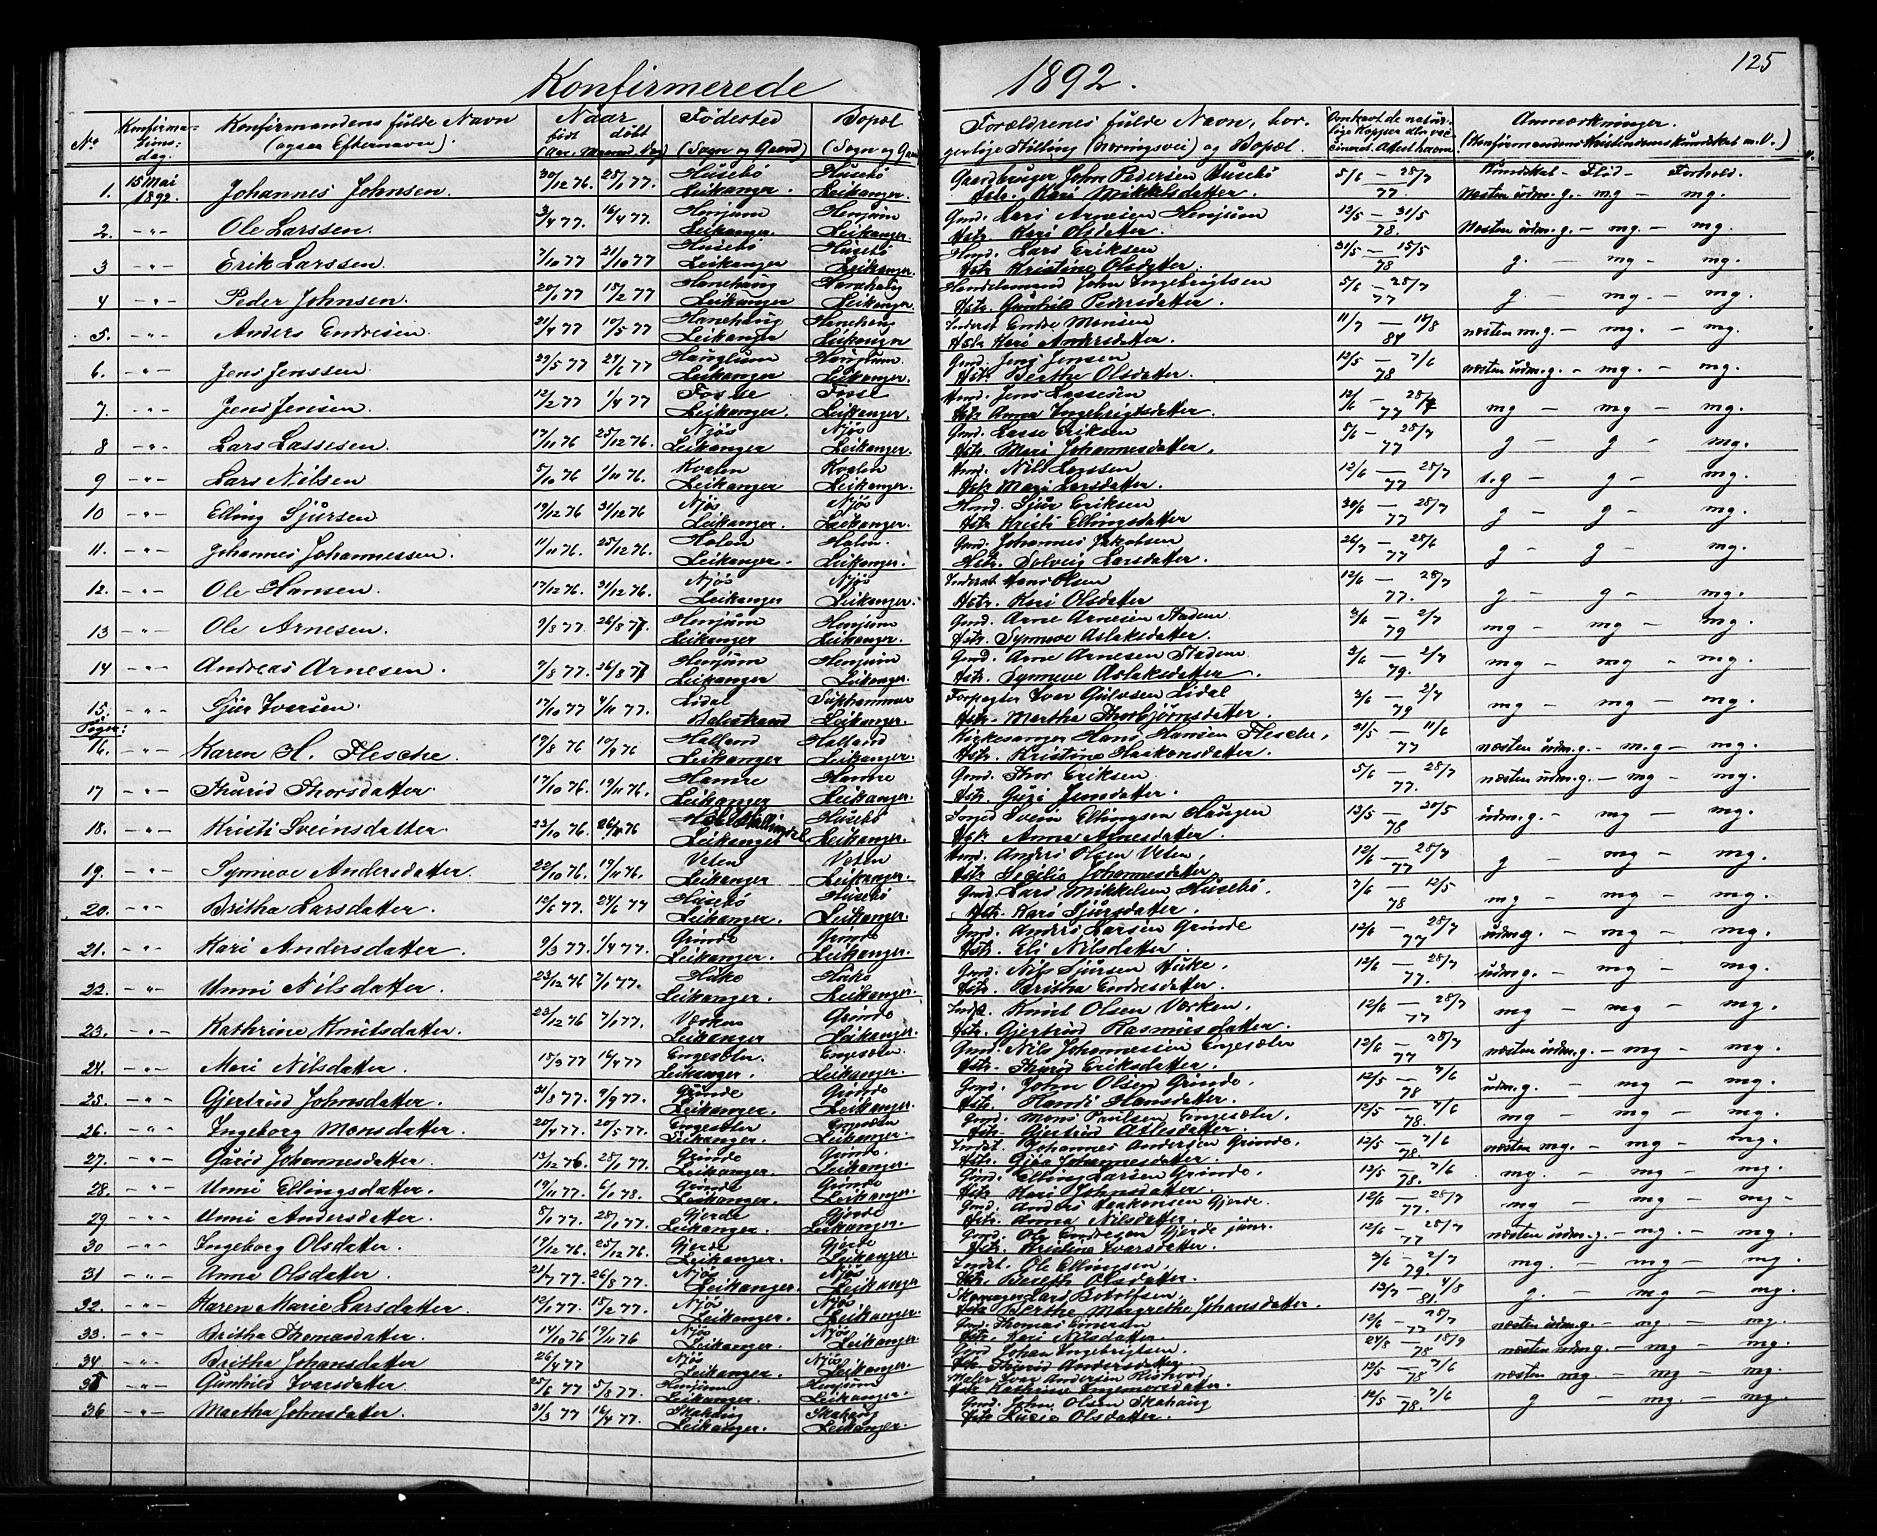 Konfirmerede 1892.
125
No Konfirmationsdag. Konfirmandens fulde Navn (ogsaa Efternavn). Naar født døbt (Aar, Maaned, Dag) Fødested (Sogn og Gaard) Bopæl (Sogn og Gaard) Forældrenes fulde Navn, borgerlige Stilling (Næringsvei) og Bopæl. Anmærkninger. (Konfirmandens Kristendomskundskab m.V.)
Kundskab - Flid - Forhold.
1. 15 Mai 1892. Johannes Johnsen. 30/12 76. 25/1 77. Husebø Leikanger. Husebø Leikanger. Gaardbruger John Pedersen Husebø Hstr. Kari Mikkelsdatter. 5/6 - 28/7 77 Næsten udm.g. - mg - mg.
2. -"- Ole Larssen. 3/4 77. 16/4 77. Henjum Leikanger. Henjum Leikanger. Gmd. Lars Arnesen Henjum Hstr. Kari Olsdatter. 12/5 - 31/5 78. Næsten udm.g. - mg. - mg.
3 -"- Erik Larssen. 7/10 77 21/10 77 Husebø Leikanger Husebø Leikanger. Hmd. Lars Eriksen Hstr. Kristine Olsdatter. 31/5 - 15/5 78 g. - mg - mg.
4 -"- Peder Johnsen. 20/1 77 18/2 77 Hanehaug Leikanger Hanehaug Leikanger. Handelsmand John Ingebrigtsen Hstr. Gunhild Pedersdatter. 5/6 - 28/7 77 g. - mg. - mg.
5. -"- Anders Endresen. 21/4 77 10/5 77 Hanehaug Leikanger Hanehaug Leikanger Inderst Endre Monsen Hstr. Kari Andersdatter. 11/7 - 18/8 84 næsten m.g. - mg. - mg.
6. -"- Jens Jenssen. 29/5 77 24/6 77 Hauglum Leikanger Hauglum Leikanger. Gmd. Jens Jensen Hstr. Berthe Olsdatter. 12/5 - 7/6 78 næsten udm.g. - mg. - mg.
7. -"- Jens Jensen. 12/2 77 1/4 77 Fosse Leikanger. Fosse Leikanger. Hmd. Jens Lassesen Hstr. Anna Ingebrigtsdatter. 12/6 - 28/7 77 mg - mg - mg.
8 -"- Lars Lassesen. 17/11 76 25/12 76. Njøs Leikanger Njøs Leikanger. Gmd. Lasse Eriksen Hstr. Mari Johannesdatter. 5/6 - 28/7 77 g - g - mg.
9 -"- Lars Nilsen 5/10 76 1/11 76. Kvalen Leikanger Kvalen Leikanger. Hmd. Nils Larssen Hstr. Mari Larsdatter. 12/6 - 28/7 77 t.g - g - mg.
10 -"- Elling Sjursen 19/12 76 31/12 76 Njøs Leikanger. Njøs Leikanger. Hmd. Sjur Eriksen Hstr. Kristi Ellingsdatter 30/6 - 28/7 77 g - g - mg.
11. -"- Johannes Johannessen. 11/11 76. 25/12 76. Holen Leikanger. Holen. Leikanger. Gmd. Johannes Jakobsen Hstr. Solveig Larsdatter. 26/7 - 28/6 77 g - g - mg.
12. -"- Ole Hansen. 17/12 76. 31/12 76. Njøs Leikanger Njøs Leikanger. Inderst Hans Olsen Hstr. Kari Olsdatter 12/6 - 28/7 77. g - g - mg.
13 -"- Ole Arnesen. 9/8 77 26/8 77. Henjum Leikanger Henjum Leikanger. Gmd. Arne Arnesen Stadem Hstr. Synneve Aslaksdatter. 3/6 - 2/7 79 mg - mg - mg.
14 -"- Andreas Arnesen. 9/8 77. 26/8 77 Henjum Leikanger Henjum Leikanger. Gmd. Arne Arnesen Stadem Hstr. Synneve Aslaksdatter. 3/6 - 2/7 79. mg - mg - mg.
15. -"- Sjur Iversen. 17/10 77 4/11 77. Lidal Balestrand Leikanger Forpagter Iver Gulvsen Lidal Hstr. Martha Thorbjørnsdatter. 3/6 - 2/7 79 mg - mg - mg.
Piger:
16. -"- Karen H. Flesche. 19/8 76 10/9 76 Halland Leikanger Halland Leikanger. Kirkesanger Hans Hansen Flesche. Hstr. Kristine Haakonsdatter. 21/5 - 11/6 77 næsten udm.g. - m.g - mg.
17 -"- Thurid Thorsdatter. 17/10 76. 19/11 76. Hamre Leikanger Hamre Leikanger. Gmd. Thor Eriksen Hstr. Guri Jensdatter. 5/6 - 28/7 77. næsten udm.g. - mg - mg.
18. -"- Kristi Sveinsdatter. 23/10 76. 26/11 76 Leikanger Husebø Leikanger. Svein Ellingsen Haugen Hstr. Anna Arnesdatter. 13/5 - 20/5 78 udm.g. - mg - mg.
19. -"- Synneve Andersdatter. 22/10 76. 19/11 76. Veten Leikanger Veten Leikanger. Hmd. Anders Olsen Veten. Hstr. Cecilie Johannesdatter 12/6 - 28/7 77 g - mg - mg.
20. -"- Britha Larsdatter. 12/6 77. 24/6 77 Husebø Leikanger. Husebø Leikanger. Gmd. Lars Mikkelsen Husebø. Hstr. Kari Sjursdatter. 7/6 - 12/5 78 mg - mg - mg.
21. -"- Kari Andersdatter. 9/3 77. 1/4 77. Grinde Leikanger. Grinde Leikanger. Gmd. Anders Larsen Grinde Hstr. Eli Nilsdatter 12/6 - 28/7 77 udm.g. - mg - mg.
22. -"- Unni Nilsdatter. 23/12 76 7/1 77. Huke Leikanger. Huke Leikanger. Gmd. Nils Sjursen Huke. Hstr. Britha Endresdatter. 12/6 - 28/7 77. udm.g. - mg - mg.
23. -"- Kathrine Knutsdatter. 23/12 76 7/1 77. Værken Leikanger Grinde Leikanger. Indst. Knut Olsen Værken. Hstr. Gjertrud Rasmusdatter. 12/6 - 28/7 77 mg - mg - mg.
24. -"- Mari Nilsdatter. 15/3 77 16/4 77 Engesæter. Leikanger. Engesæter Leikanger. Gmd. Nils Johannessen Engesæter Hstr. Thurid Eriksdatter. 12/6 - 28/7 77 næsten udm.g. - mg - mg.
25. -"- Gjertrud Johnsdatter. 31/8 77. 9/9 77. Grinde Leikanger. Grinde Leikanger. Gmd. John Olsen Grinde. Hstr. Randi Hansdatter. 12/5 - 7/6 78 udm.g. - mg - mg.
26. -"- Ingeborg Monsdatter. 20/4 77. 20/5 77. Engesæter Leikanger. Engesæter Leikanger. Gmd. Mons Paulsen Engesæter. Hstr. Gjertrud Atlesdatter. 12/5 - 7/6 78. mg - mg - mg.
27. -"- Gurid Johannesdatter. 13/12 76 28/1 77. Grinde Leikanger. Grinde. Leikanger. Indst. Johannes Andersen Grinde. Hstr. Johannesdatter. 12/5 - 7/6 78. næsten mg. - mg - mg.
28. -"- Unni Ellingsdatter. 19/11 77. 6/1 78. Grinde Leikanger. Grinde Leikanger. Gmd. Elling Larsen Grinde. Hstr. Kari Johnsdatter. 12/5 - 7/6 78. mg. - mg - mg.
29 -"- Unni Andersdatter. 8/1 77. 28/1 77. Gjerde Leikanger. Gjerde Leikanger. Gmd. Anders Haakonsen Gjerde. Hstr. Anna Nilsdatter. 12/6 - 28/7 77. mg - mg - mg -
30 -"- Ingeborg Olsdatter. 19/12 76. 25/12 76. Gjerde Leikanger. Gjerde Leikanger. Gmd. Ole Endresen Gjerde junr. Hstr. Kristine Ivarsdatter. 12/6 - 28/7 77 næsten udm.g. - mg - mg.
31 -"- Anna Olsdatter. 21/7 77. 26/8 77. Njøs Leikanger. Njøs Leikanger Indst. Ole Ellingsen. Hstr. Berethe Olsdatter. 3/6 - 2/7 79. mg. - mg - mg.
32. -"- Karen Marie Larsdatter. 12/1 77. 18/2 77. Njøs Leikanger. Njøs Leikanger. Skomager Lars Botolfsen. Hstr. Berthe Margrethe Johansdatter. 13/7 - 4/8 81. g. - mg - mg.
33. -"- Britha Thomasdatter. 14/10 76 19/11 76 Njøs Leikanger. Njøs Leikanger. Gmd. Thomas Einersen Hstr. Kari Nilsdatter. 12/6 - 28/7 77 næsten udm.g. - mg. - mg.
34 -"- Britha Johansdatter 26/4 77 Njøs Leikanger. Njøs Leikanger. Gmd Johan Ingebrigtsen. Hstr. Thurid Andersdatter 24/8 - 18/9 78 næsten udm.g. - mg - mg.
35 -"- Gunhild Ivarsdatter. 25/6 77 5/8 77. Henjum Leikanger. Henjum Leikanger. Maler Ivar Andersen Hstr. Kathrine Ingemorsdatter. 12/5 - 7/6 78 næsten mg. - mg - mg
36 -"- Martha Johnsdatter. 31/3 77 16/4 77. Skahaug Leikanger. Skahaug Leikanger. Gmd. John Olsen Skahaug Hstr. Lucie Olsdatter. 12/5 - 7/6 78. g - mg. - mg.